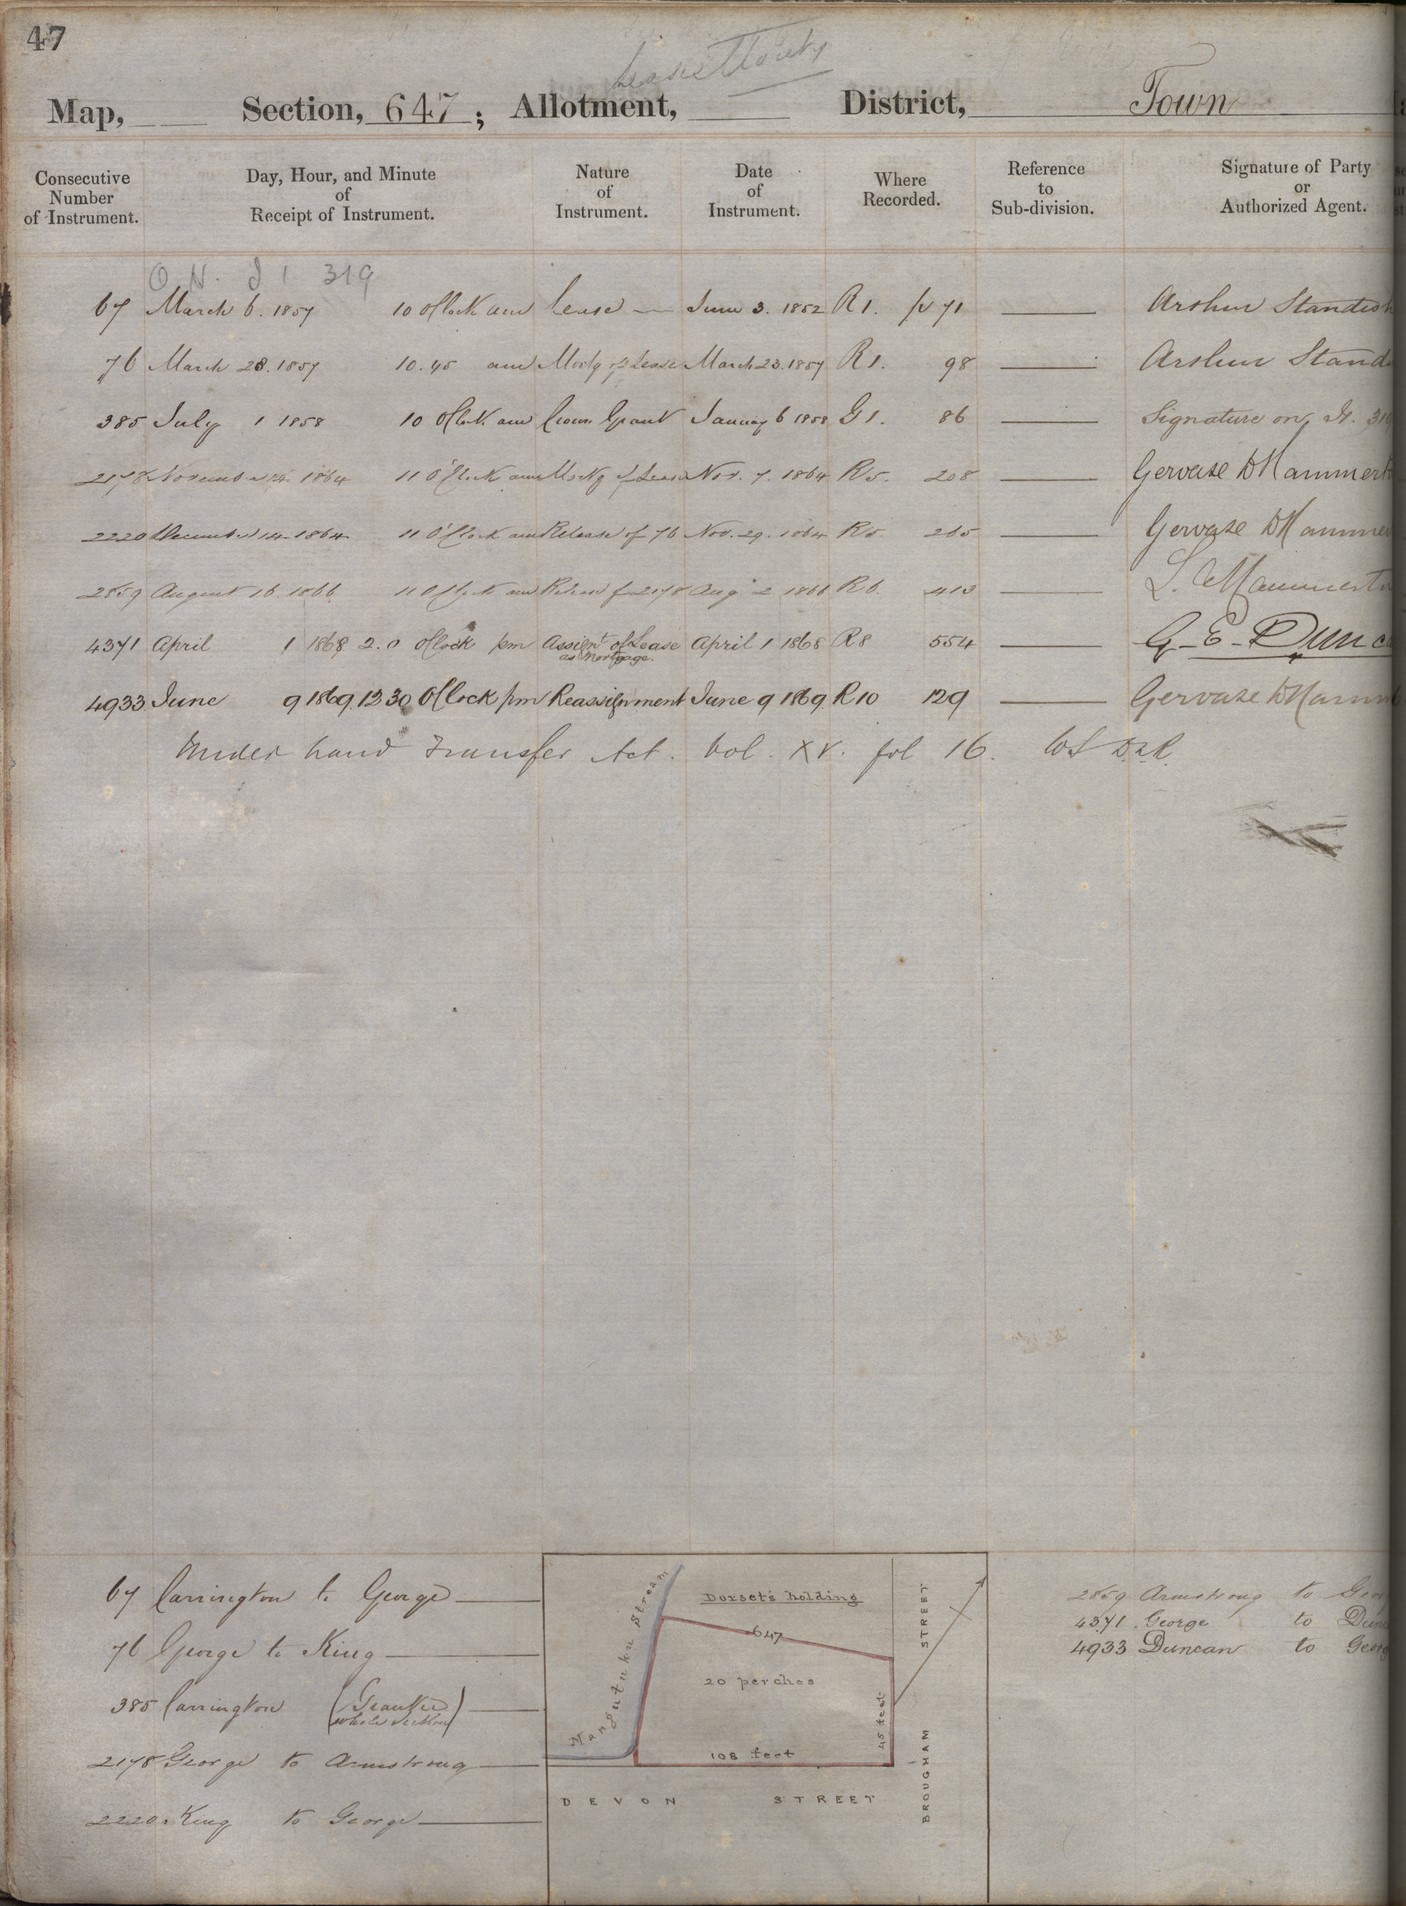 47
Lease
Map, Section, 647; Allotment, District, Town
Consecutive Number of Instrument.
Day, Hour, and Minute of Receipt of Instrument.
Nature of Instrument.
Date of Instrument.
Where Recorded.
Reference to Sub-division.
Signature of Party or Authorized Agent.
O.N. I 1 319
67 March 6. 1857 10 oClock am Lease June 3. 1852 R1. p 71 Arthur Standish
76 March 28. 1857 10.45 am Mortg of Lease March 23. 1857 R1. 98 Arthur Stand
385 July 1 1858 10 oClock am Crown Grant January 6 1858 G1. 86 Signature on, 319
2178 November 14 1864 11 O'Clock am Mortg of Lease Nov. 7. 1864 R5. 208 Gervase D Hammert
2220 December 14 1864 11 O'Clock am Release of 76 Nov. 29. 1864 R5 265 Gervase D Hammer
2859 August 16. 1866 11 OClock am Release of 2178 Aug 2 1866 R6. 413 L. Hammerto
4371 April 1 1868 2.0 oClock pm Assignt of Lease as Mortgage. April 1 1868 R8 554 G-E-Dunc
4933 June 9 1869. 12 30 OClock pm Reassignment June 9 1869 R10 129 Gervase D Hamm
Under Land Transfer Act. Vol. XV. fol 16. D.L.R.
67 Carrington to George
76 George to King
385 Carrington (Grantee whole section)
2178 George to Armstrong
2220 King to George
Mangotuku Stream
Dorset's holding
647
20 perches
108 feet
45 feet
DEVON STREET
BROUGHAM STREET
2859 Armstrong to Geor
4371 George to Dunc
4933 Duncan to Georg